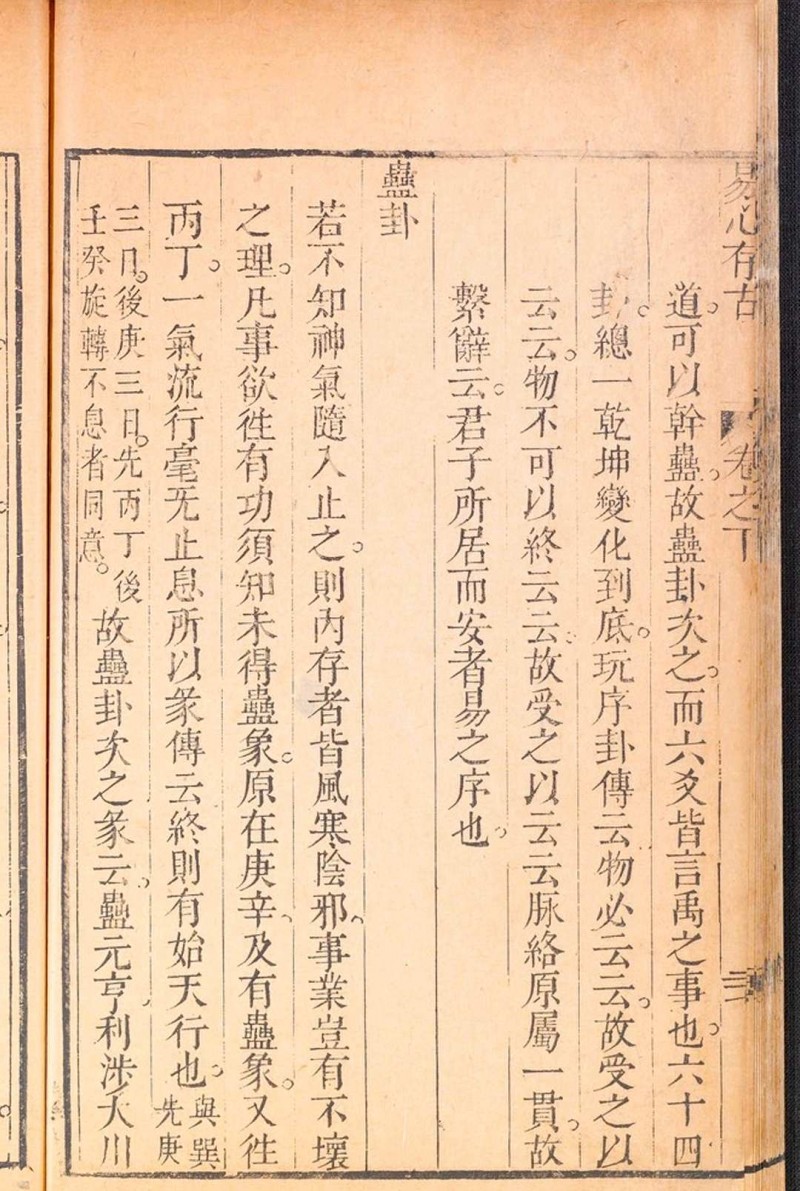 易心存古 卷之下
道。可以幹蠱。故蠱卦次之。而六爻皆言禹之事也。六十四
卦。總一乾坤變化到底。玩序卦傳云物必云云。故受之以
云云。物不可以終云云。故受之以云云脉絡原屬一貫。故
繫辭云。君子所居而安者易之序也。
蠱卦
若不知神氣隨入止之。則內存者皆風寒陰邪、事業豈有不壞
之理。凡事欲徃有功須知未得蠱象。原在庚辛、及有蠱象。又徃
丙丁。一氣流行毫无止息所以彖傳云終則有始天行也。與巽先庚
三日。後庚三日。先丙丁後壬癸旋轉不息者同意。故蠱卦次之彖云。蠱元亨、利涉大川